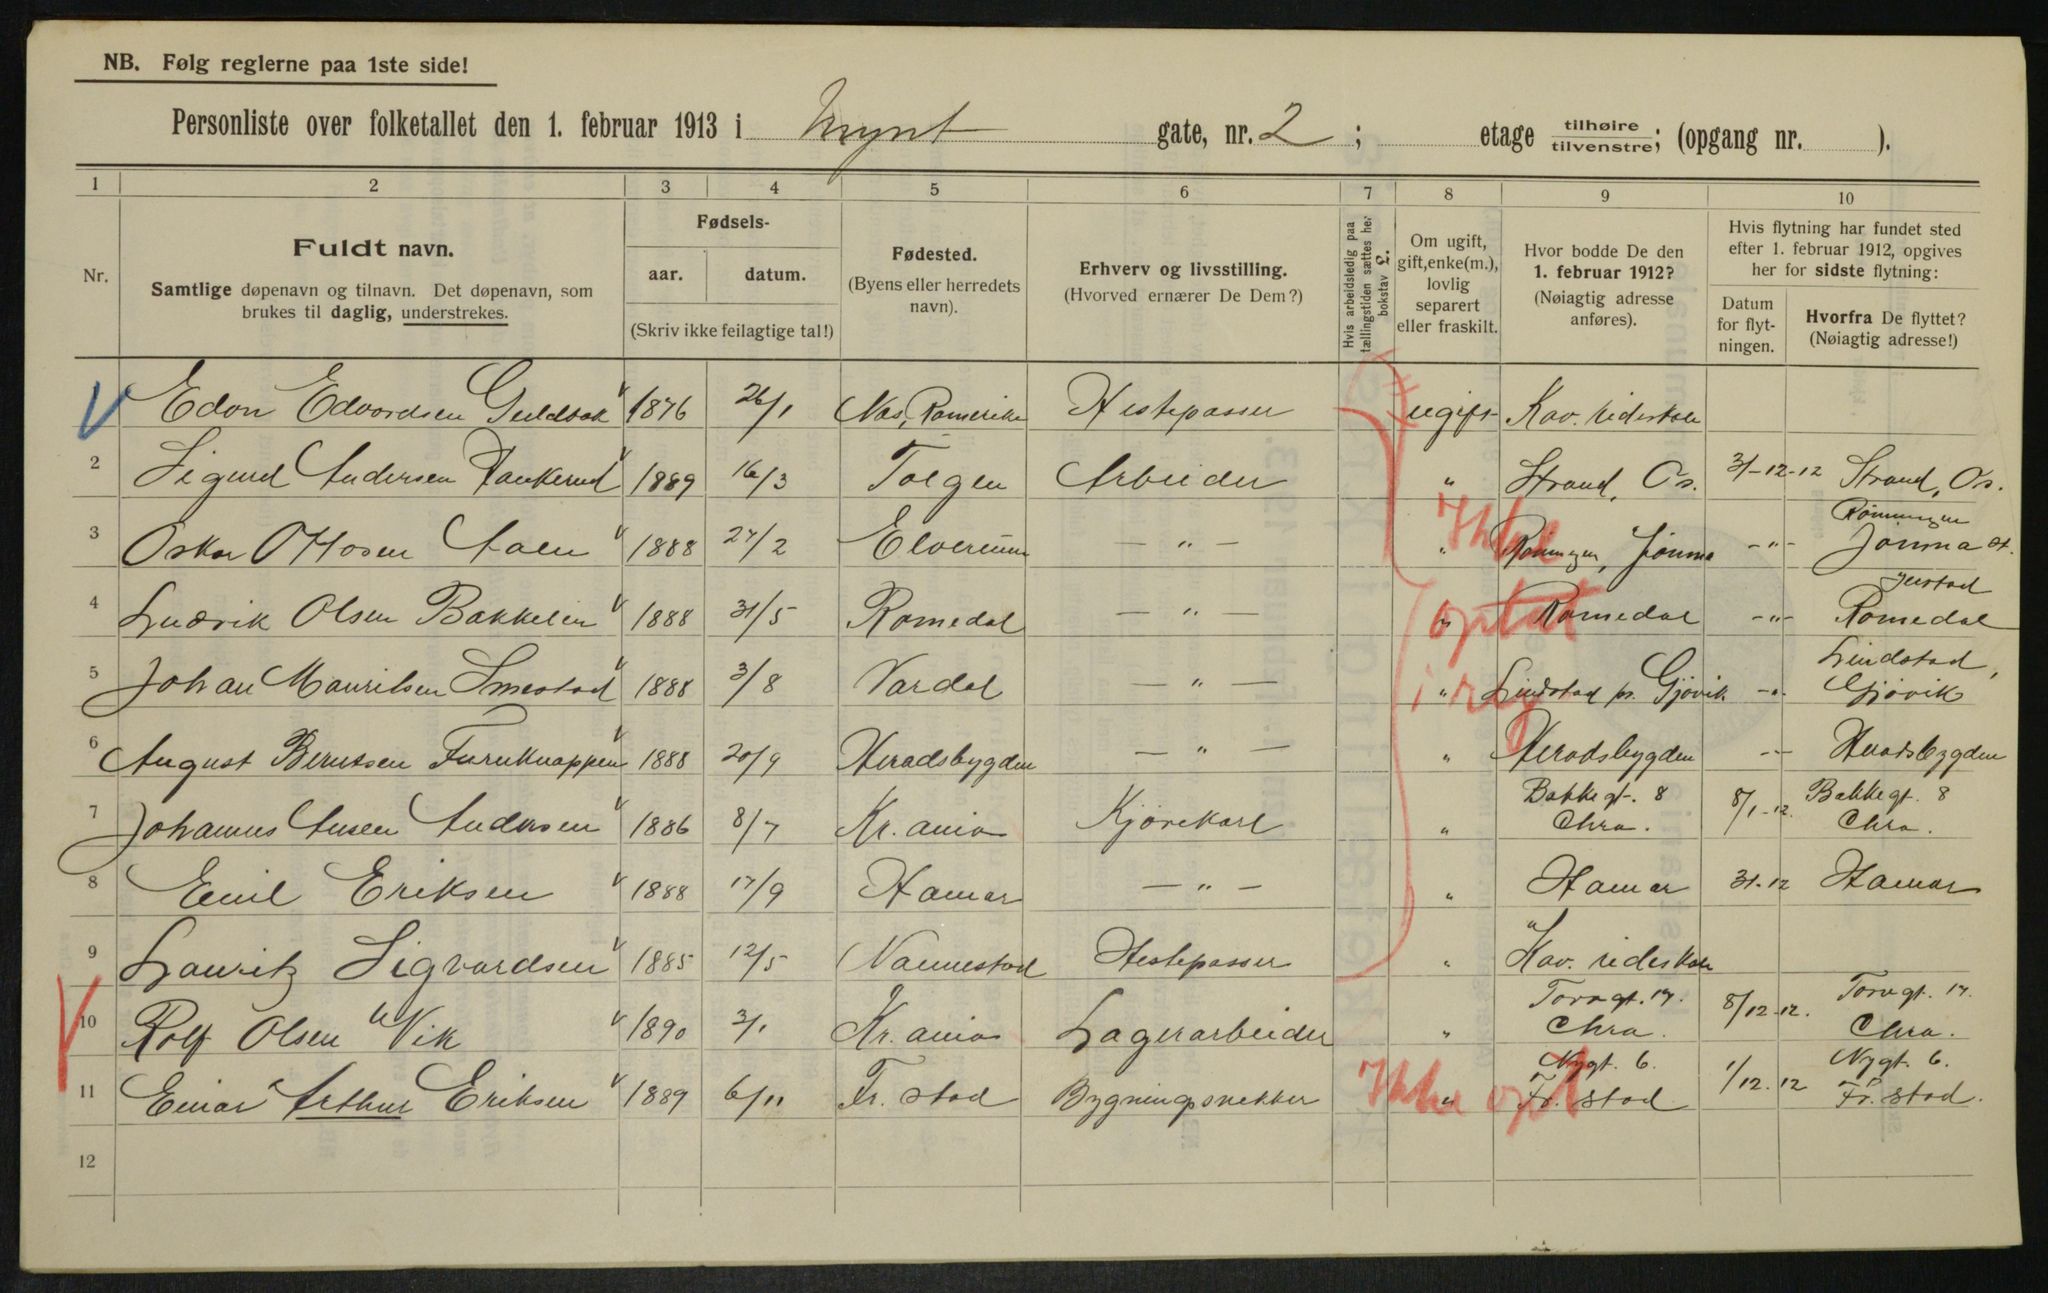 NB. Følg reglerne paa 1ste side!
Personliste over folketallet den 1. februar 1913 i Mynt gate, nr. 2 ; etage tilhøire tilvenstre; (opgang nr. ).
1 2 3 4 5 6 7 8 9 10
Nr.
Fuldt navn.
Samtlige døpenavn og tilnavn. Det døpenavn, som
brukes til daglig, understrekes.
Fødsels-
aar. datum.
(Skriv ikke feilagtige tal!)
Fødested.
(Byens eller herredets
navn).
Erhverv og livsstilling.
(Hvorved ernærer De Dem?)
Hvis arbeidsledig paa
tællingstiden sættes her
bokstav £.
Om ugift,
gift, enke(m.),
lovlig
separert
eller fraskilt.
Hvor bodde De den
1. februar 1912?
(Nøiagtig adresse
anføres).
Hvis flytning har fundet sted
efter 1. februar 1912, opgives
her for sidste flytning:
Datum
for flyt-
ningen.
Hvorfra De flyttet?
(Nøiagtig adresse!)
Edon Edvardsen Guldbak 1876 26/1 Nes, Romerike Hestepasser ugift Kav. rideskole
2 Sigurd Andersen 1889 16/3 Tolgen Arbeider " Strand, Os. 31-12-12 Strand, Os.
3 Oskar Ottosen 1888 27/2 Elverum — " — " Rønningen, Jønma -"- Rønningen
Jønma st.
4 Ludvik Olsen Bakkelien 1888 31/5 Romedal — " — " Romedal -"- Romedal
5 Johan Mauritsen Smestad 1888 3/8 Vardal — " — " Lindstad pr. Gjøvik -"- Lindstad,
Gjøvik
6 August Berntsen Furuknappen 1888 20/9 Heradsbygden — " — " Heradsbygden -"- Heradsbygden
7 Johannes Ansen Andersen 1886 8/7 Kr.ania Kjørekarl " Bakkegt. 8
Chra. 8/1-12. Bakkegt. 8
Chra.
8 Emil Eriksen 1888 17/9 Hamar — " — " Hamar 31-12 Hamar
9 Lauritz Sigvardsen 1885 12/5 Nannestad Hestepasser " Kav. rideskole
10 Rolf Olsen Vik 1890 3/1 Kr.ania Lagerarbeider " Torvgt. 17.
Chra. 8/12-12. Torvgt. 17.
Chra.
11 Einar Arthur Eriksen 1889 6/11 Fr. stad Bygningssnekker " Nygt. 6.
Fr. stad 1/12.12 Nygt. 6.
Fr. stad.
12
Ikke
optat
i reg
Ikke opt